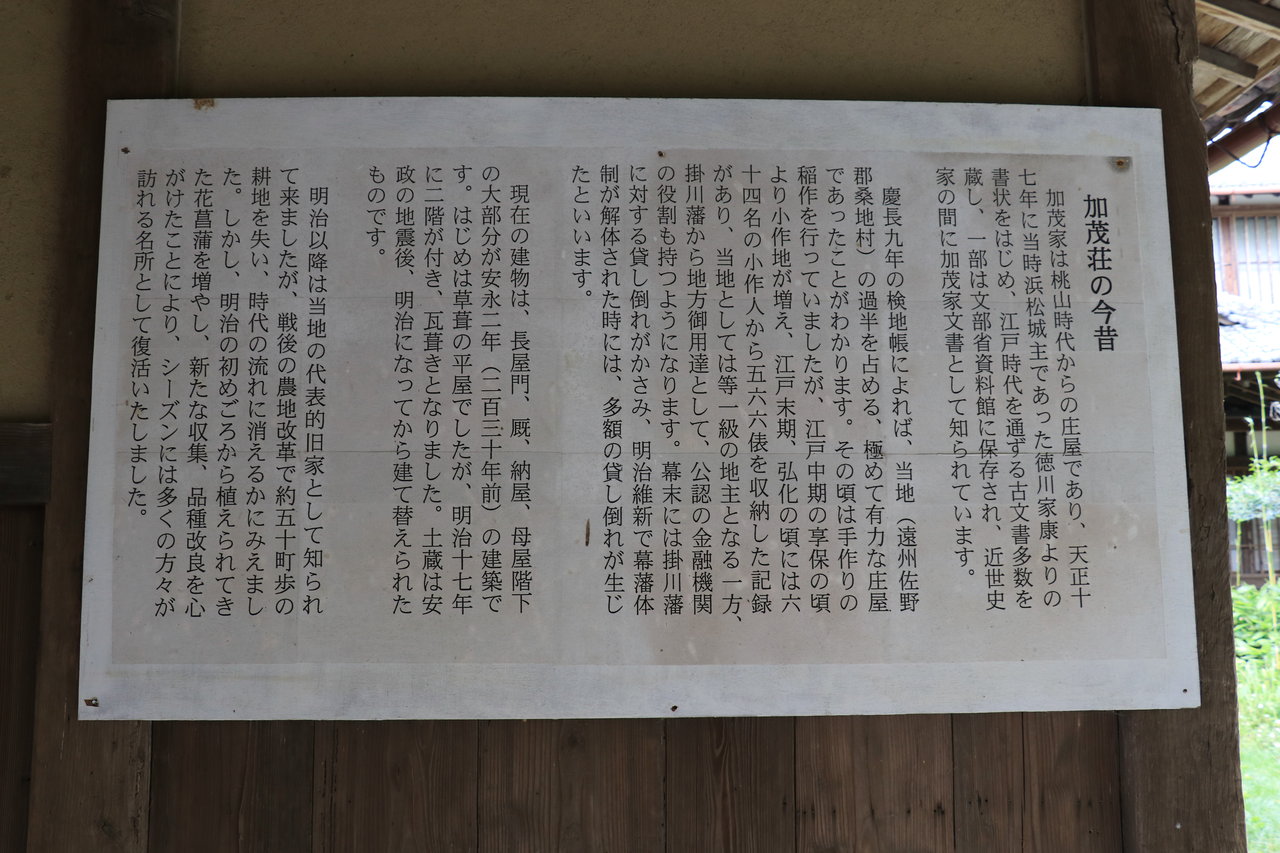 加茂荘の今昔
加茂家は桃山時代からの庄屋であり、天正十
七年に当時浜松城主であった徳川家康よりの
書状をはじめ、江戸時代を通ずる古文書多数を
蔵し、一部は文部省資料館に保存され、近世史
家の間に加茂家文書として知られています。
慶長九年の検地帳によれば、当地（遠州佐野
郡桑地村）の過半を占める、極めて有力な庄屋
であったことがわかります。その頃は手作りの
稲作を行っていましたが、江戸中期の享保の頃
より小作地が増え、江戸末期、弘化の頃には六
十四名の小作人から五六六俵を収納した記録
があり、当地としては等一級の地主となる一方、
掛川藩から地方御用達として、公認の金融機関
の役割も持つようになります。幕末には掛川藩
に対する貸し倒れがかさみ、明治維新で幕藩体
制が解体された時には、多額の貸し倒れが生じ
たといいます。
現在の建物は、長屋門、厩、納屋、母屋階下
の大部分が安永二年（二百三十年前）の建築で
す。はじめは草葺の平屋でしたが、明治十七年
に二階が付き、瓦葺きとなりました。土蔵は安
政の地震後、明治になってから建て替えられた
ものです。
明治以降は当地の代表的旧家として知られ
て来ましたが、戦後の農地改革で約五十町歩の
耕地を失い、時代の流れに消えるかにみえまし
た。しかし、明治の初めごろから植えられてき
た花菖蒲を増やし、新たな収集、品種改良を心
がけたことにより、シーズンには多くの方々が
訪れる名所として復活いたしました。